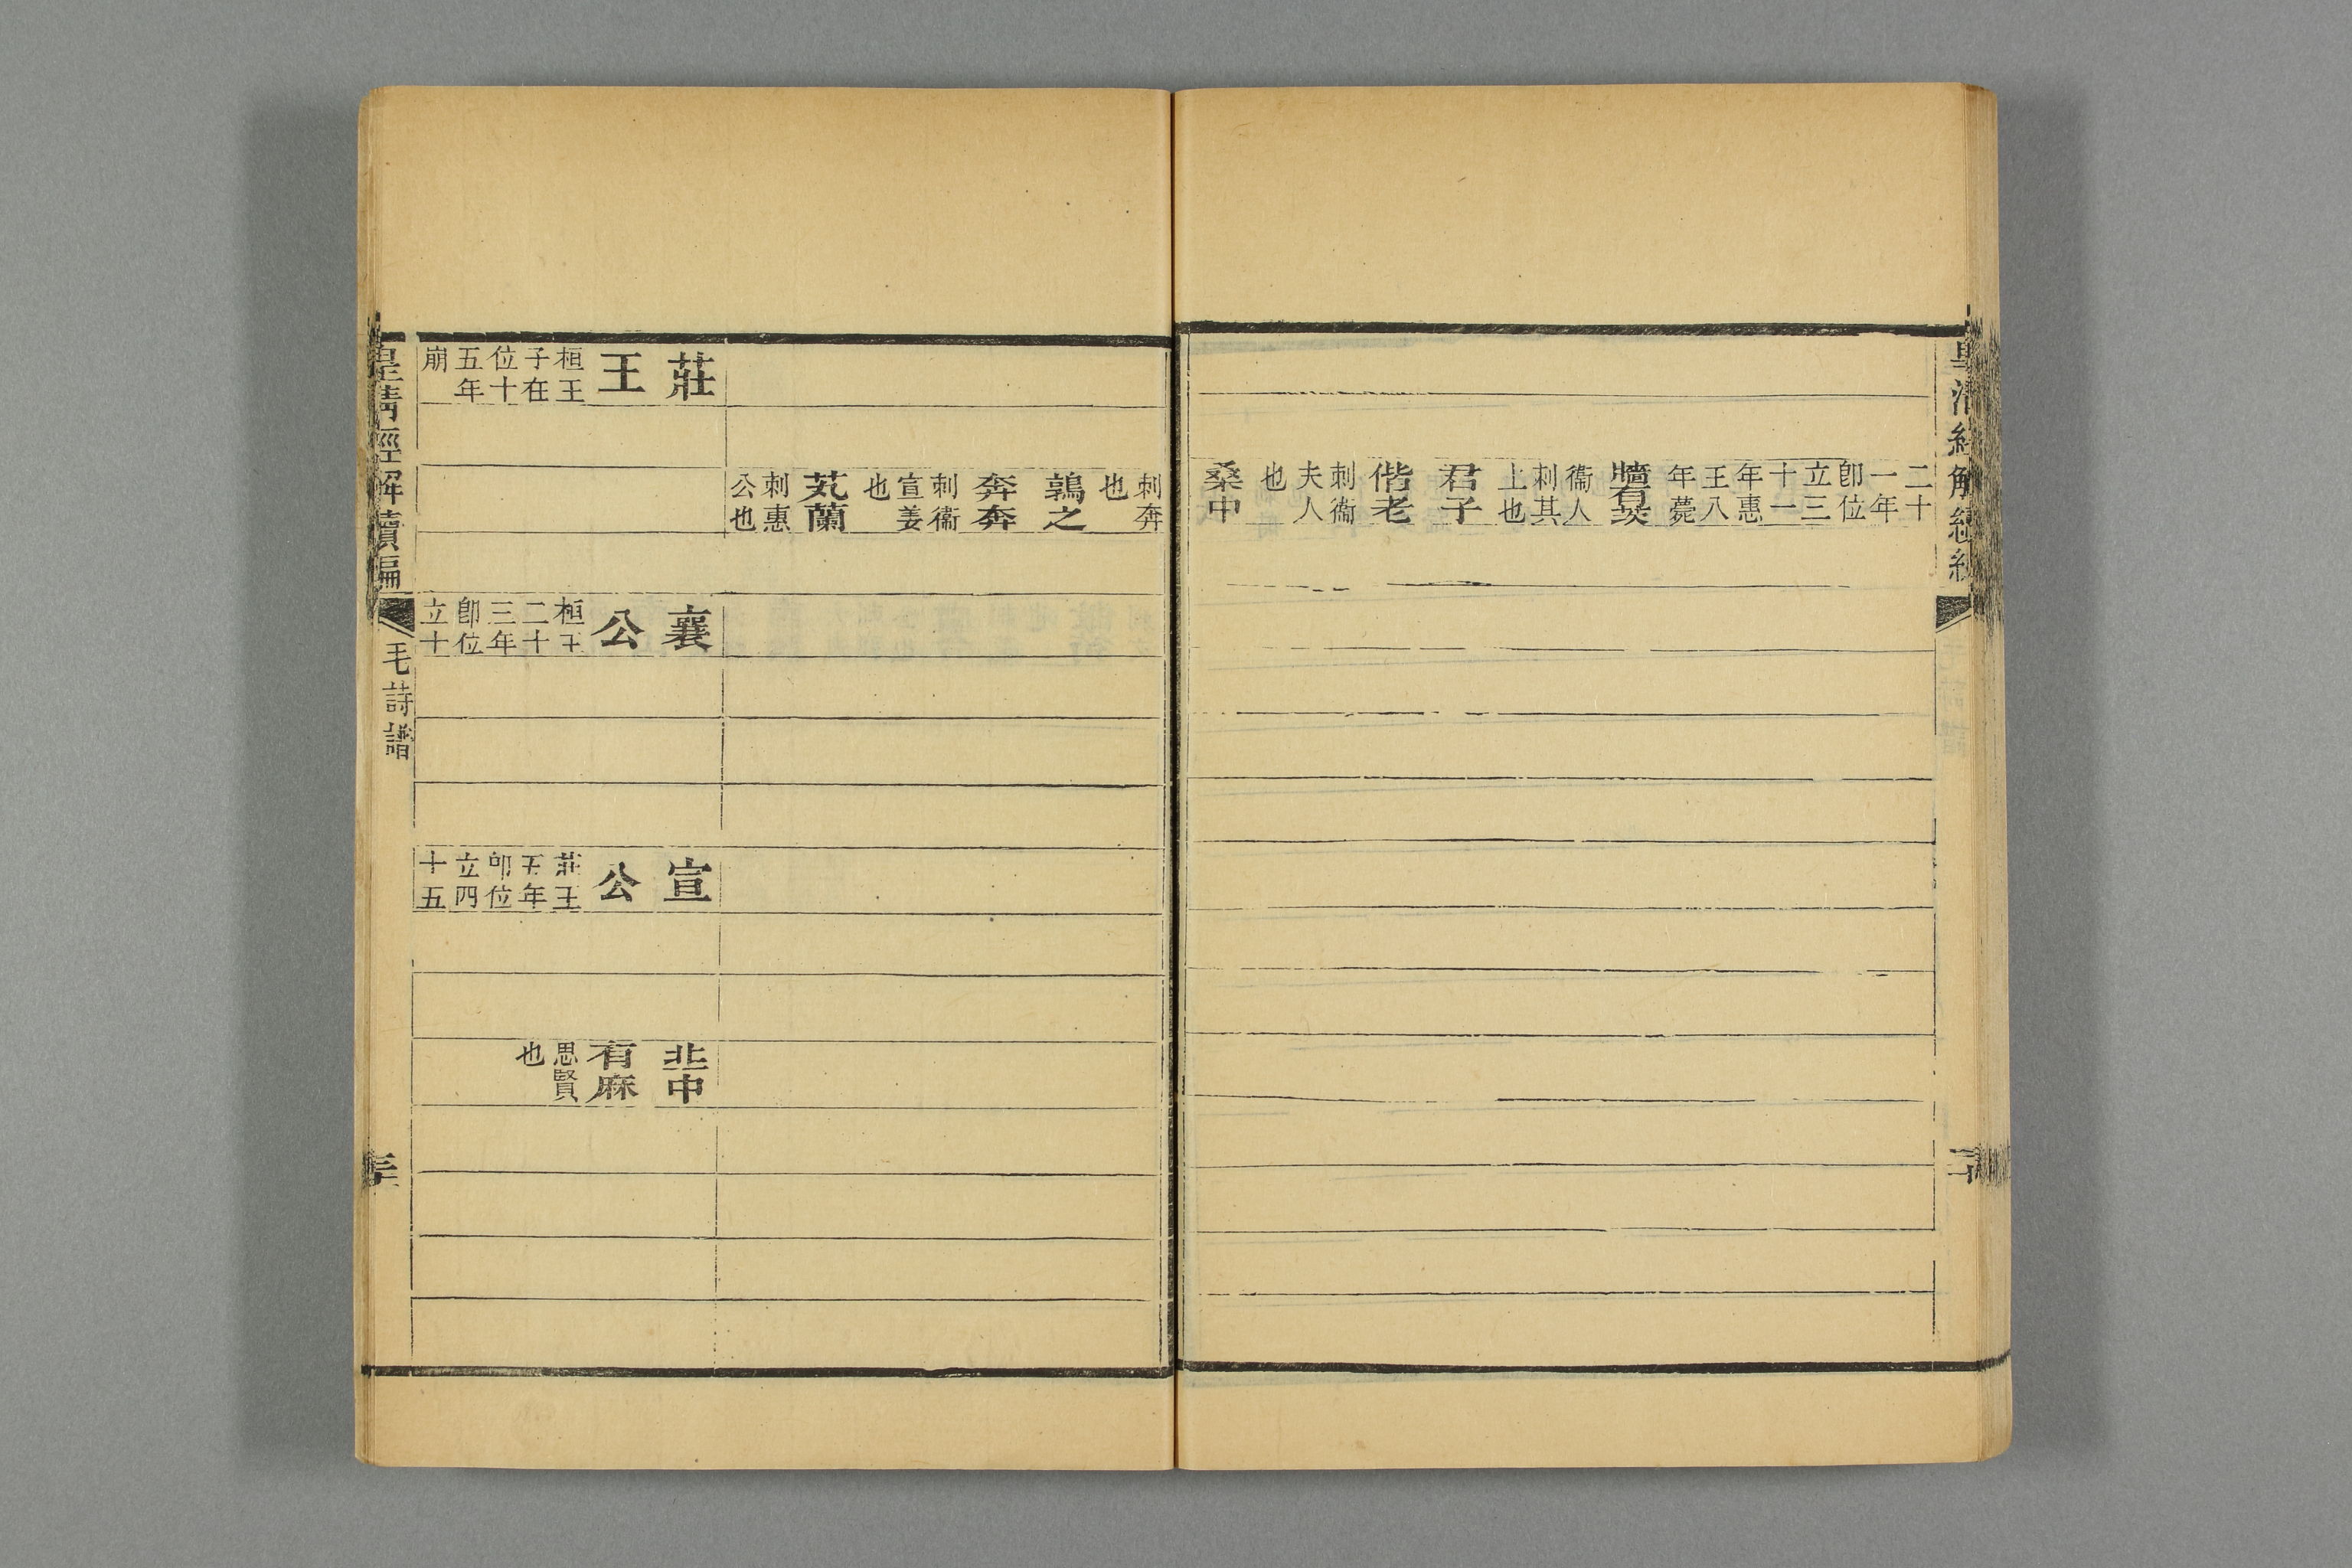 二十
一年
卽位
立三
十一
年惠
王八
年薨
牆有茨
衞人
刺其
上也
君子
偕老
刺衞
夫人
也
桑中
刺奔
也
鶉之
奔奔
刺衞
宣姜
也
芄蘭
刺惠
公也
莊
王
桓王
子在
位十
五年
崩
襄
公
桓王
二十
三年
卽位
立十
宣
公
莊王
五年
卽位
立四
十五
丠中
有麻
思賢
也
皇清經解續編 毛詩譜